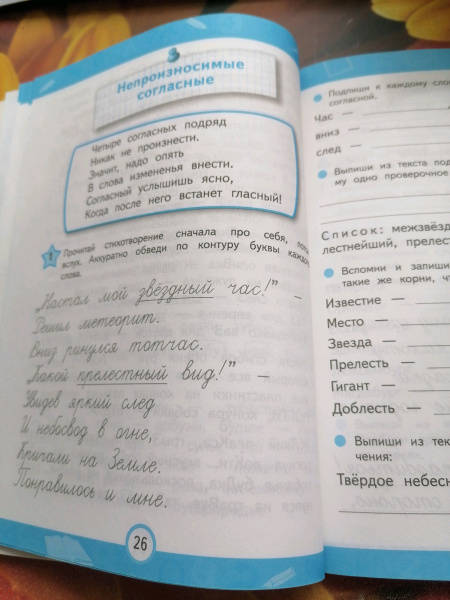 Непроизносимые
согласные
Четыре согласных подряд
Никак не произнести.
Значит, надо опять
В слова измененья внести.
Согласный услышишь ясно,
Когда после него встанет гласный!
1 Прочитай стихотворение сначала про себя,
вслух. Аккуратно обведи по контуру буквы
слова.
Настал мой звёздный час!" –
Решил метеорит.
Вниз ринулся тотчас.
Какой прелестный вид!" –
Увидев яркий след
И небосвод в огне,
Кричали на Земле.
Понравилось и мне.
26
Подпиши к каждому
согласной.
Час —
вниз —
след —
Выпиши из текста
му одно проверочное
Список:
лестнейший,
Вспомни и запиши
такие же корни,
Известие —
Место —
Звезда —
Прелесть —
Гигант —
Доблесть —
Выпиши из
чения:
Твёрдое